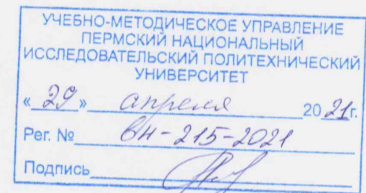 УЧЕБНО-МЕТОДИЧЕСКОЕ УПРАВЛЕНИЕ
ПЕРМСКИЙ НАЦИОНАЛЬНЫЙ
ИССЛЕДОВАТЕЛЬСКИЙ ПОЛИТЕХНИЧЕСКИЙ
УНИВЕРСИТЕТ
« 29 » апреля 2021г.
Рег. № вн-215-2021
Подпись